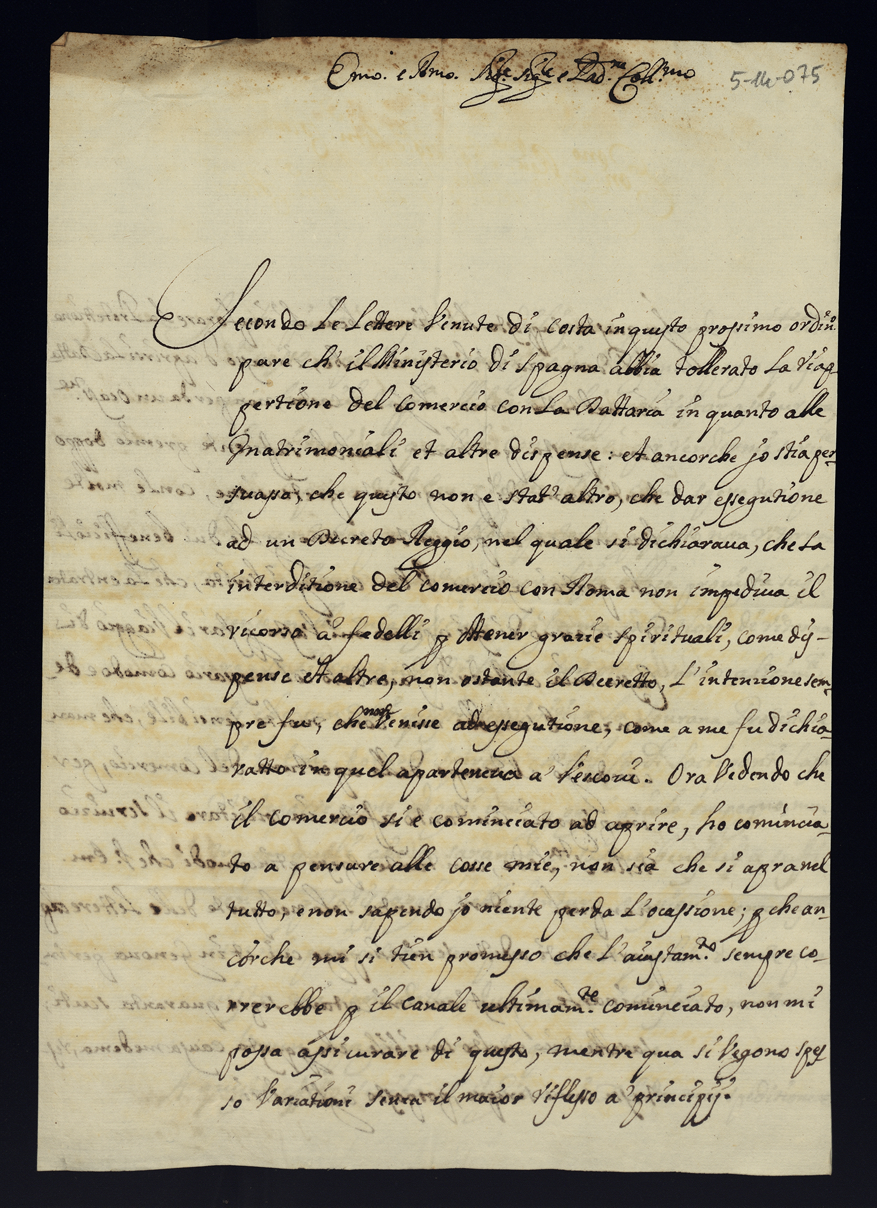 Emo. e Rmo. Sig.re Sig.re e Pad.ne Coll.mo
5-14-075
Secondo le lettere venute di costa in questo prossimo ordin.
pare ch' il Ministerio di Spagna abbia tollerato la riap-
pertione del comercio con la Dattaria in quanto alle
matrimoniali et altre dispense: et ancorche jo stia per-
suasso, che questo non e stato altro, che dar essegutione
ad un Decreto Reggio, nel quale si dichiaraua, che la
interditione del comercio con Roma non impediua il
ricorso a' fedelli p ottener grazie spirituali, come dis-
pense et altre, non ostante il Decretto, l'intenzione sem-
pre fu, che non venisse ad essegutione, come a me fu dichia-
ratto in quel aparteneua a' Vescoui. Ora vedendo che
il comercio si e cominciato ad aprire, ho comincia-
to a pensare alle cosse mie, non sia che si apra nel
tutto, e non sapendo jo niente perda l'ocassione; p che an-
corche mi si tien promesso che l'aiustam.to sempre co-
rrerebbe p il canale ultimam.te cominciato, non mi
possa assicurare di questo, mentre qua si vegono spes-
so variationi senza il maior riflesso a' principij.